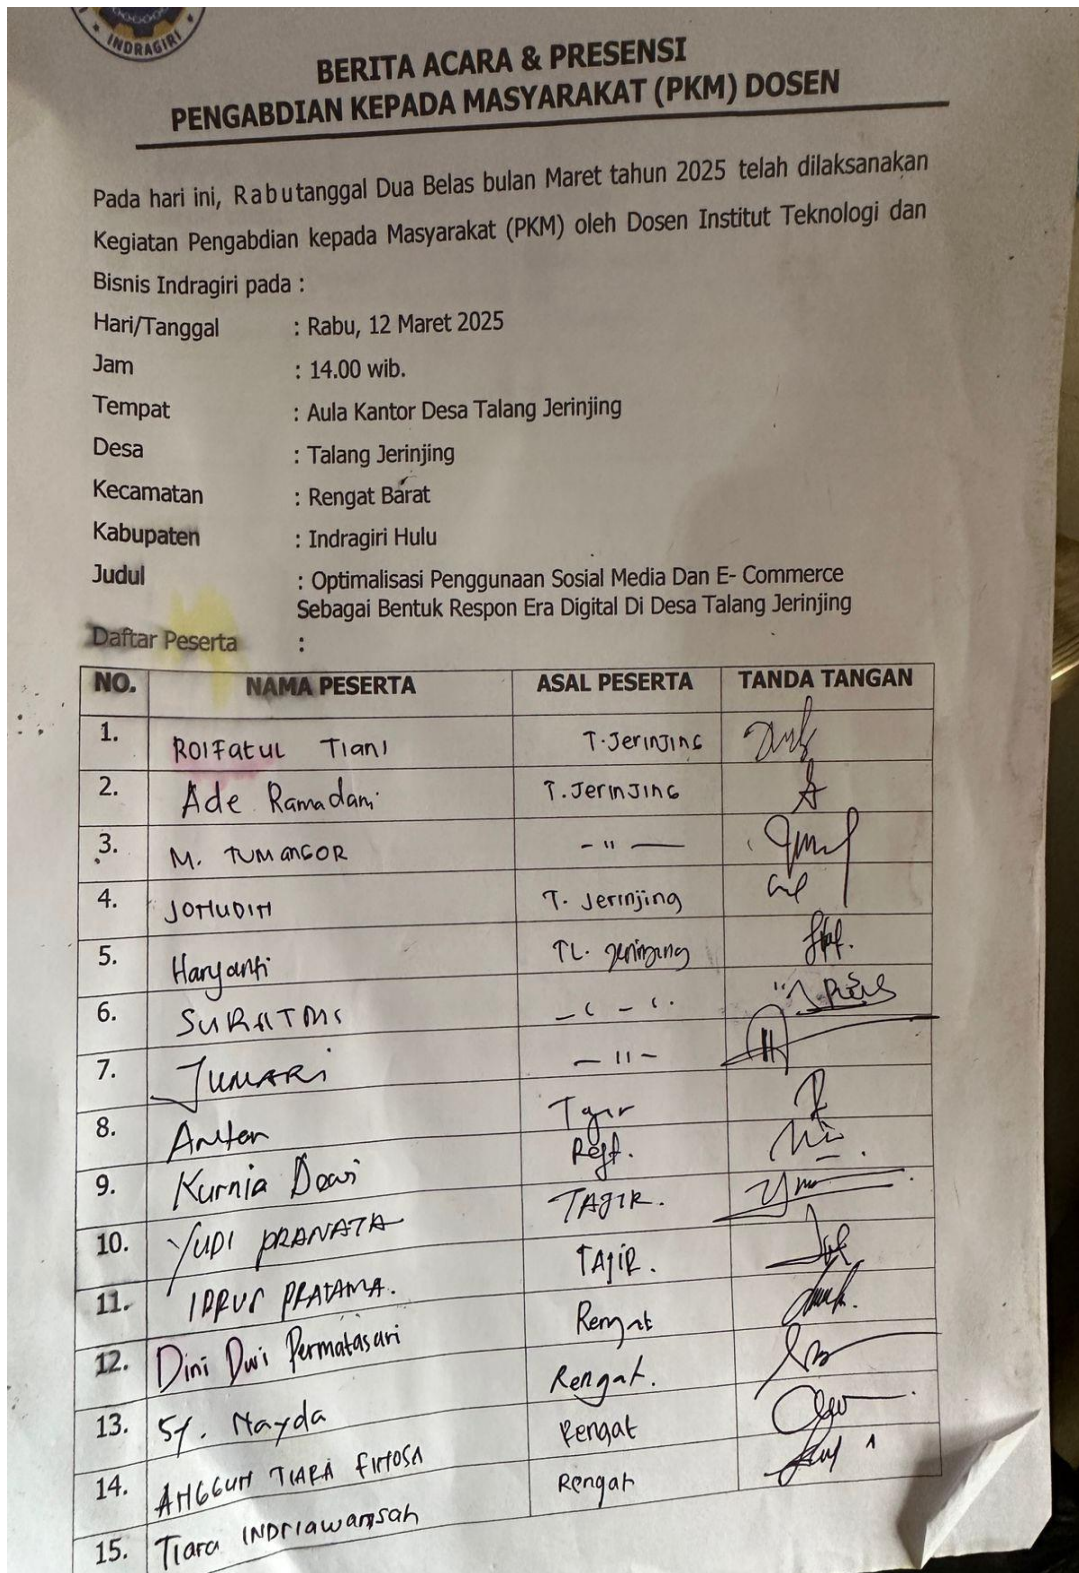 INDRAGIRI
BERITA ACARA & PRESENSI
PENGABDIAN KEPADA MASYARAKAT (PKM) DOSEN
Pada hari ini, Rabutanggal Dua Belas bulan Maret tahun 2025 telah dilaksanakan
Kegiatan Pengabdian kepada Masyarakat (PKM) oleh Dosen Institut Teknologi dan
Bisnis Indragiri pada :
Hari/Tanggal : Rabu, 12 Maret 2025
Jam : 14.00 wib.
Tempat : Aula Kantor Desa Talang Jerinjing
Desa : Talang Jerinjing
Kecamatan : Rengat Barat
Kabupaten : Indragiri Hulu
Judul : Optimalisasi Penggunaan Sosial Media Dan E- Commerce
Sebagai Bentuk Respon Era Digital Di Desa Talang Jerinjing
Daftar Peserta :
NO. NAMA PESERTA ASAL PESERTA TANDA TANGAN
1. ROIFatUL TIANI T.JerINJING
2. Ade Ramadani T.JerINJING
3. M. TUMANGOR - " -
4. JOHUDIN T. Jerinjing
5. Haryanti TL. Jerinjing
6. SURATMI
7. JUMARI - " -
8. Tajir
9. Kurnia Dewi Regt.
10. YUDI PRANATA TAJIR.
11. IDRUS PRATAMA. TAJIR.
12. Dini Dwi Permatasari Rengat
13. Sy. Nayda Rengat.
14. ANGGUN TIARA Rengat
15. Tiara Rengat